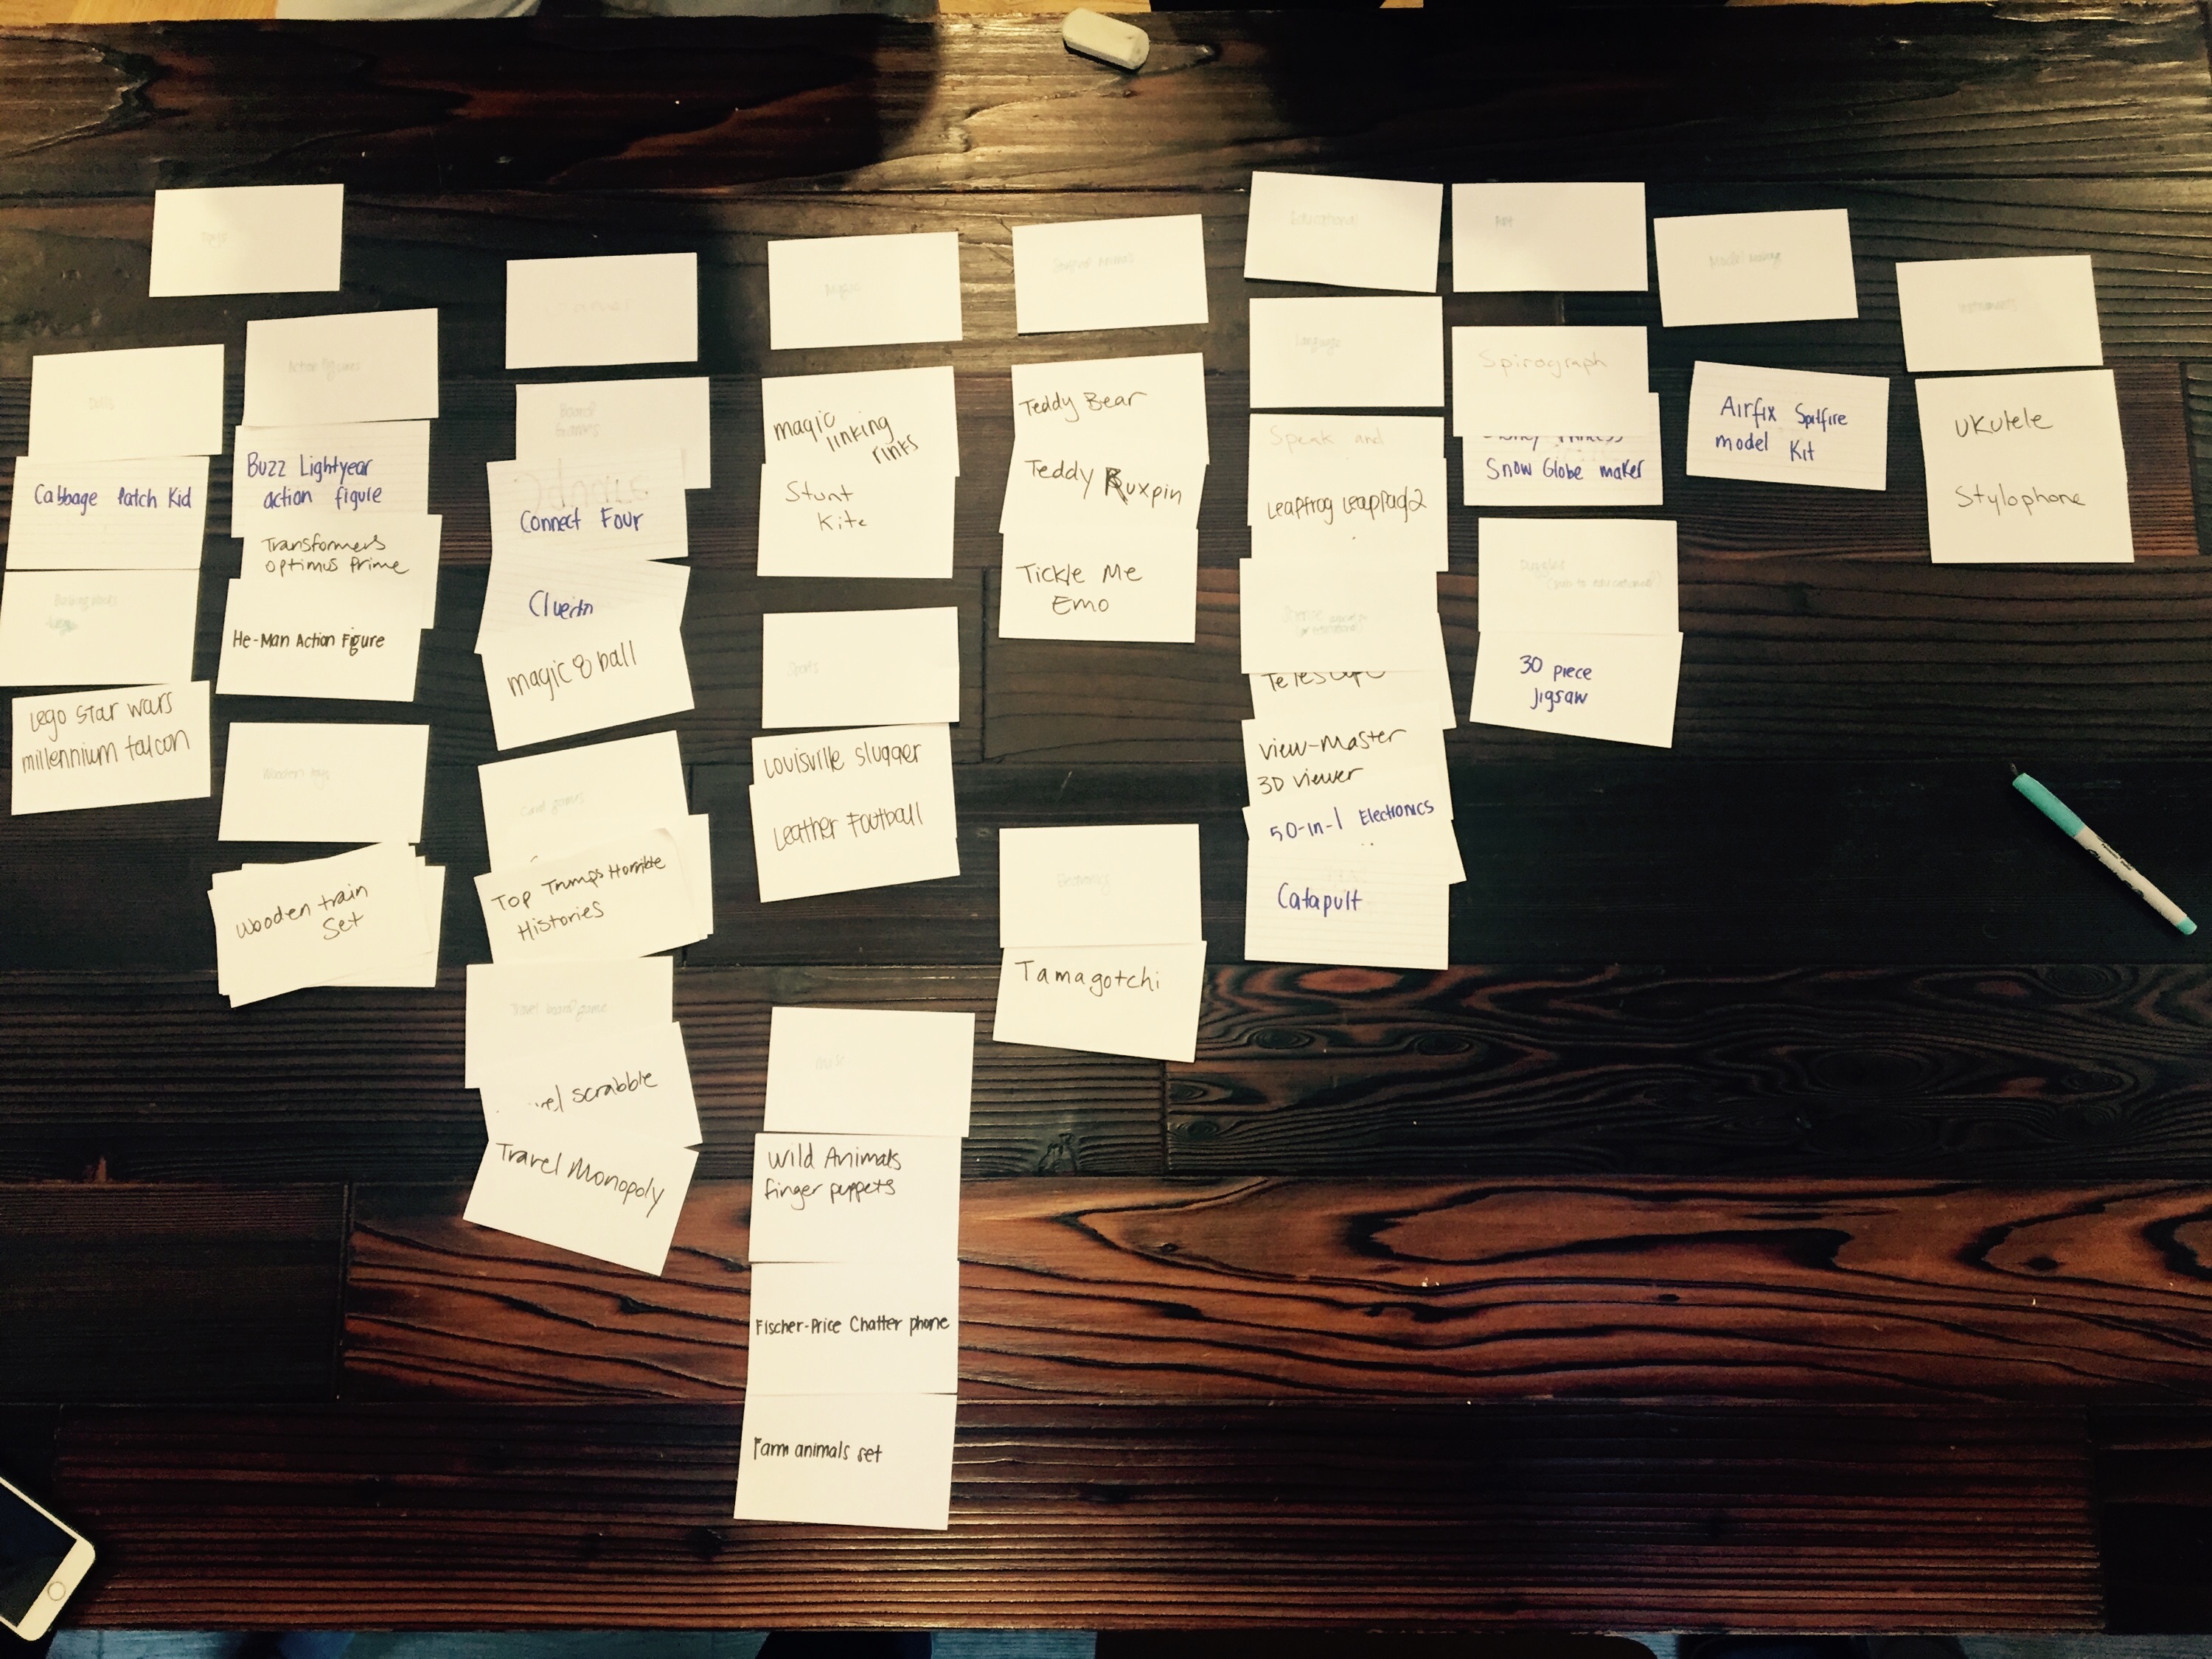 Toys
Dolls
Cabbage Patch Kid
Building blocks
Lego
Lego Star wars
millennium falcon
Action figures
Buzz Lightyear
action figure
Transformers
optimus Prime
He-Man Action Figure
Wooden toys
wooden train
Set
Games
Board
Games
Connect Four
Cluedo
magic 8 ball
Card games
Top Trumps Horrible
Histories
Travel board game
Scrabble
Travel Monopoly
Magic
magic
linking
rinks
Stunt
Kite
Sports
Louisville Slugger
Leather Football
Misc
Wild Animals
finger puppets
Fischer-Price Chatter phone
Farm animals set
Stuffed Animals
Teddy Bear
Teddy Ruxpin
Tickle Me
Emo
Electronics
Tamagotchi
Educational
Language
Speak and
Leapfrog Leappad2
Science
View-Master
3D viewer
50-in-1 Electronics
Catapult
Art
Spirograph
Snow Globe maker
Puzzles
30 piece
Jigsaw
Model making
Airfix Spitfire
model Kit
Instruments
UKulele
Stylophone